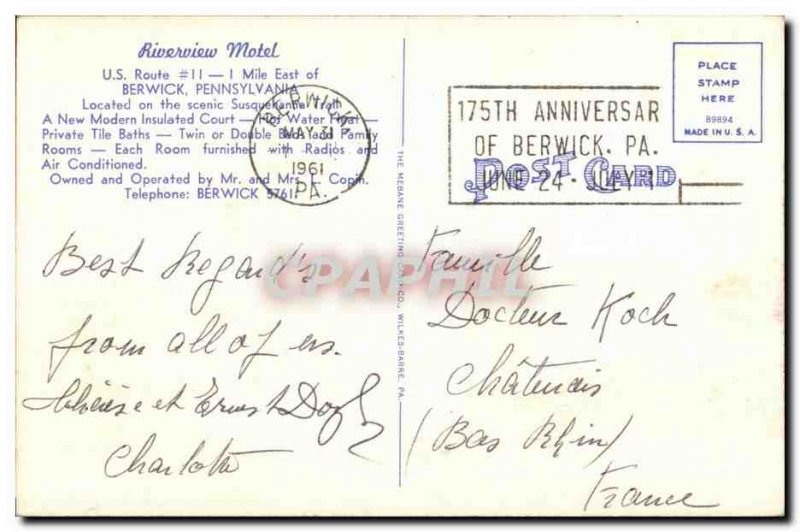 Riverview Motel
U.S. Route #11 — 1 Mile East of
BERWICK, PENNSYLVANIA
Located on the scenic Susquehanna Trail
A New Modern Insulated Court — Hot Water Heat —
Private Tile Baths — Twin or Double Beds and Family
Rooms — Each Room furnished with Radios and
Air Conditioned.
Owned and Operated by Mr. and Mrs. L. Copin.
Telephone: BERWICK 5761.
BERWICK
MAY 31
1961
PA.
Best Regard's
from all of us.
Thérèse et Ernest
Charlotte
THE MEBANE GREETING CARD CO., WILKES-BARRE, PA.
175TH ANNIVERSAR
OF BERWICK, PA.
JUNE 24 - JULY 1
POST CARD
PLACE
STAMP
HERE
89894
MADE IN U. S. A.
Famille
Docteur Koch
Châtenois
(Bas Rhin)
France
CPAPHIL